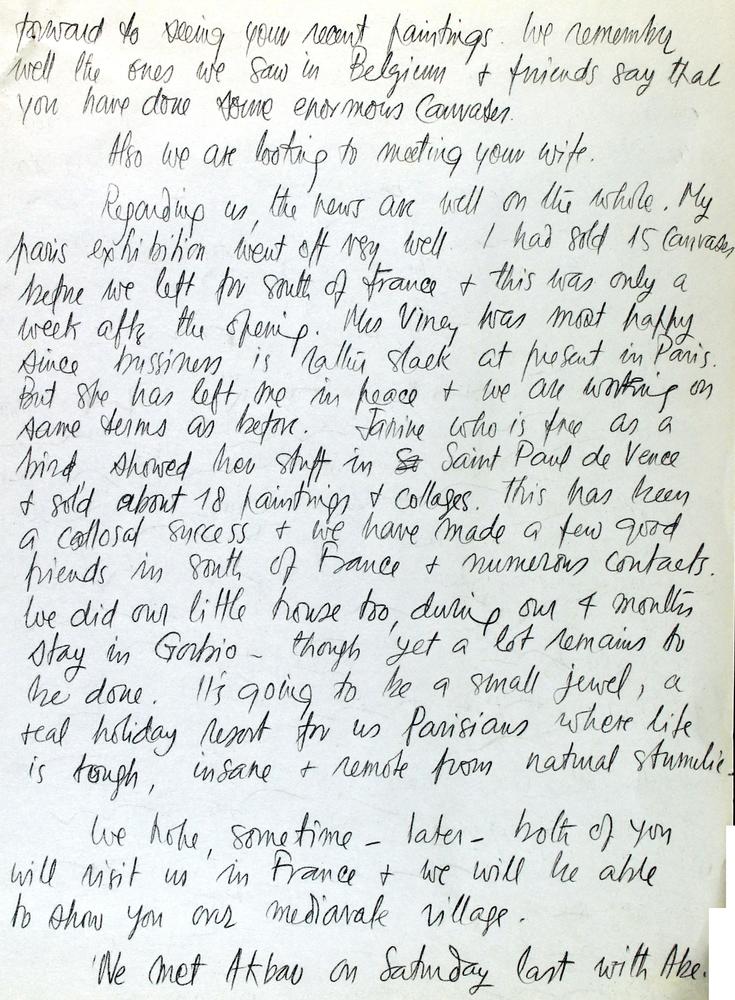 forward to seeing your recent paintings. We remember
well the ones we saw in Belgium & friends say that
you have done some enormous canvases.
Also we are looking to meeting your wife.
Regarding us, the news are well on the whole. My
paris exhibition went off very well. I had sold 15 canvases
before we left for south of france & this was only a
week after the opening. Mrs Viney was most happy
since bussiness is rather slack at present in Paris.
But she has left me in peace & we are working on
same terms as before. Janine who is free as a
bird showed her stuff in St Saint Paul de Vence
& sold about 18 paintings & collages. This has been
a collosal success & we have made a few good
friends in south of France & numerous contacts.
We did our little house too, during our 4 months
stay in Gorbio - though yet a lot remains to
be done. It's going to be a small jewel, a
real holiday resort for us Parisians where life
is tough, insane & remote from natural stumulie -
We hope, sometime - later - both of you
will visit us in France & we will be able
to show you our mediavale village.
We met Akbar on Saturday last with Abe.